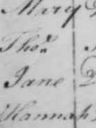 Mary
Tho.s
Jane
Hannah